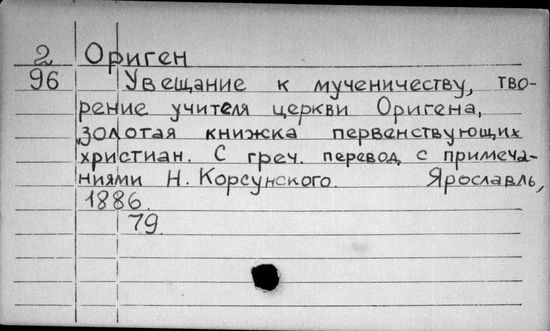 2 Ориген
96 Увещание к мученичеству, тво-
рение учителя церкви Оригена,
золотая книжка первенствующих
христиан. С греч. перевод с примеча-
ниями Н. Корсунского. Ярославль,
1886.
79